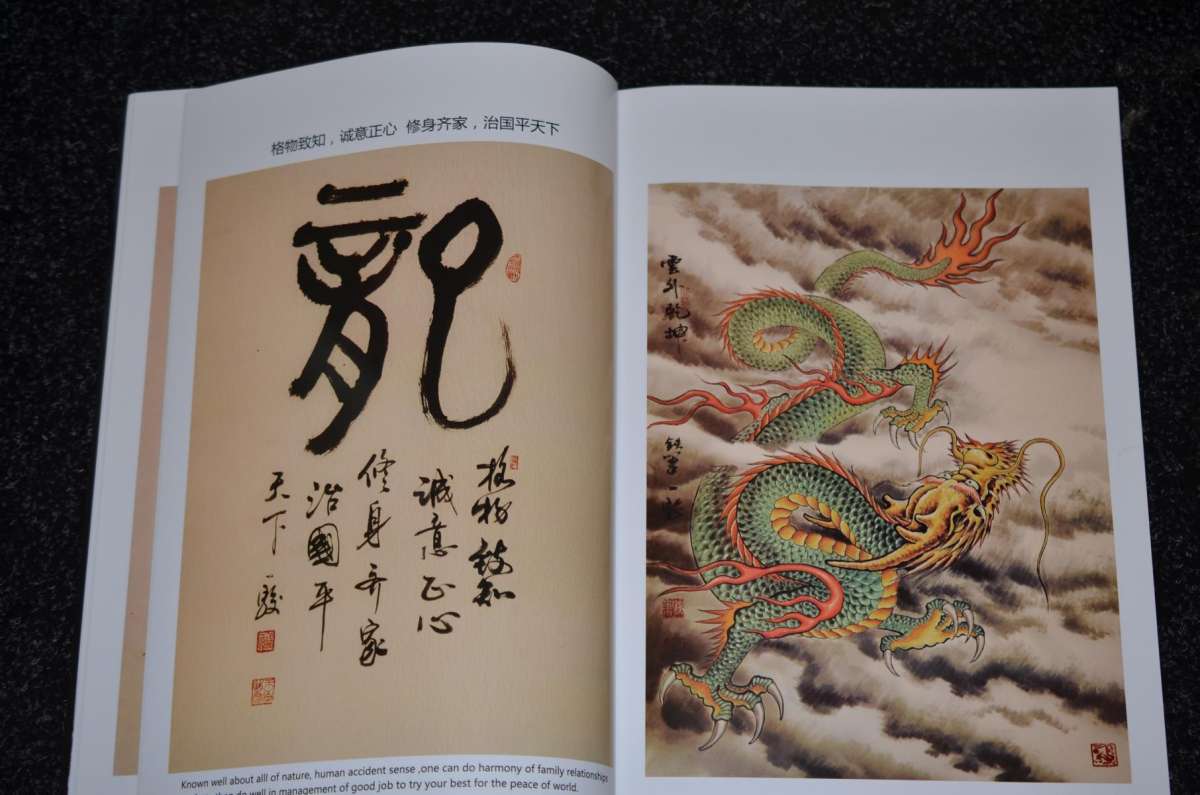 格物致知，诚意正心  修身齐家，治国平天下
龍
格物致知
诚意正心
修身齐家
治國平
天下
一驥
Known well about alll of nature, human accident sense ,one can do harmony of family relationships
do well in management of good job to try your best for the peace of world.
雲外乾坤